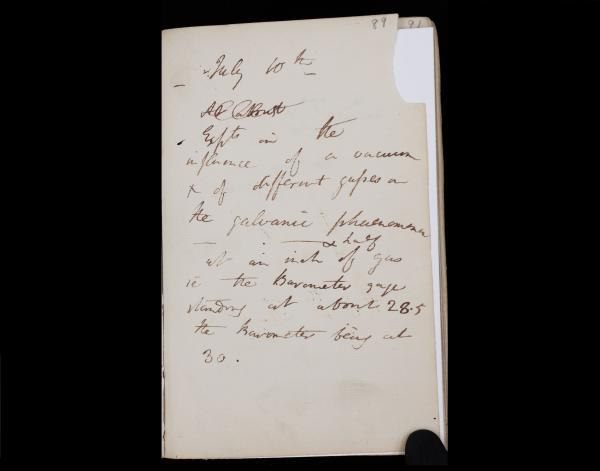 89 91
July 10th
Expts on the
influence of a vacuum
& of different gases on
the galvanic phaenomena
& half
at an inch of gas
ie the Barometer gage
standing at about 28.5
the Barometer being at
30.